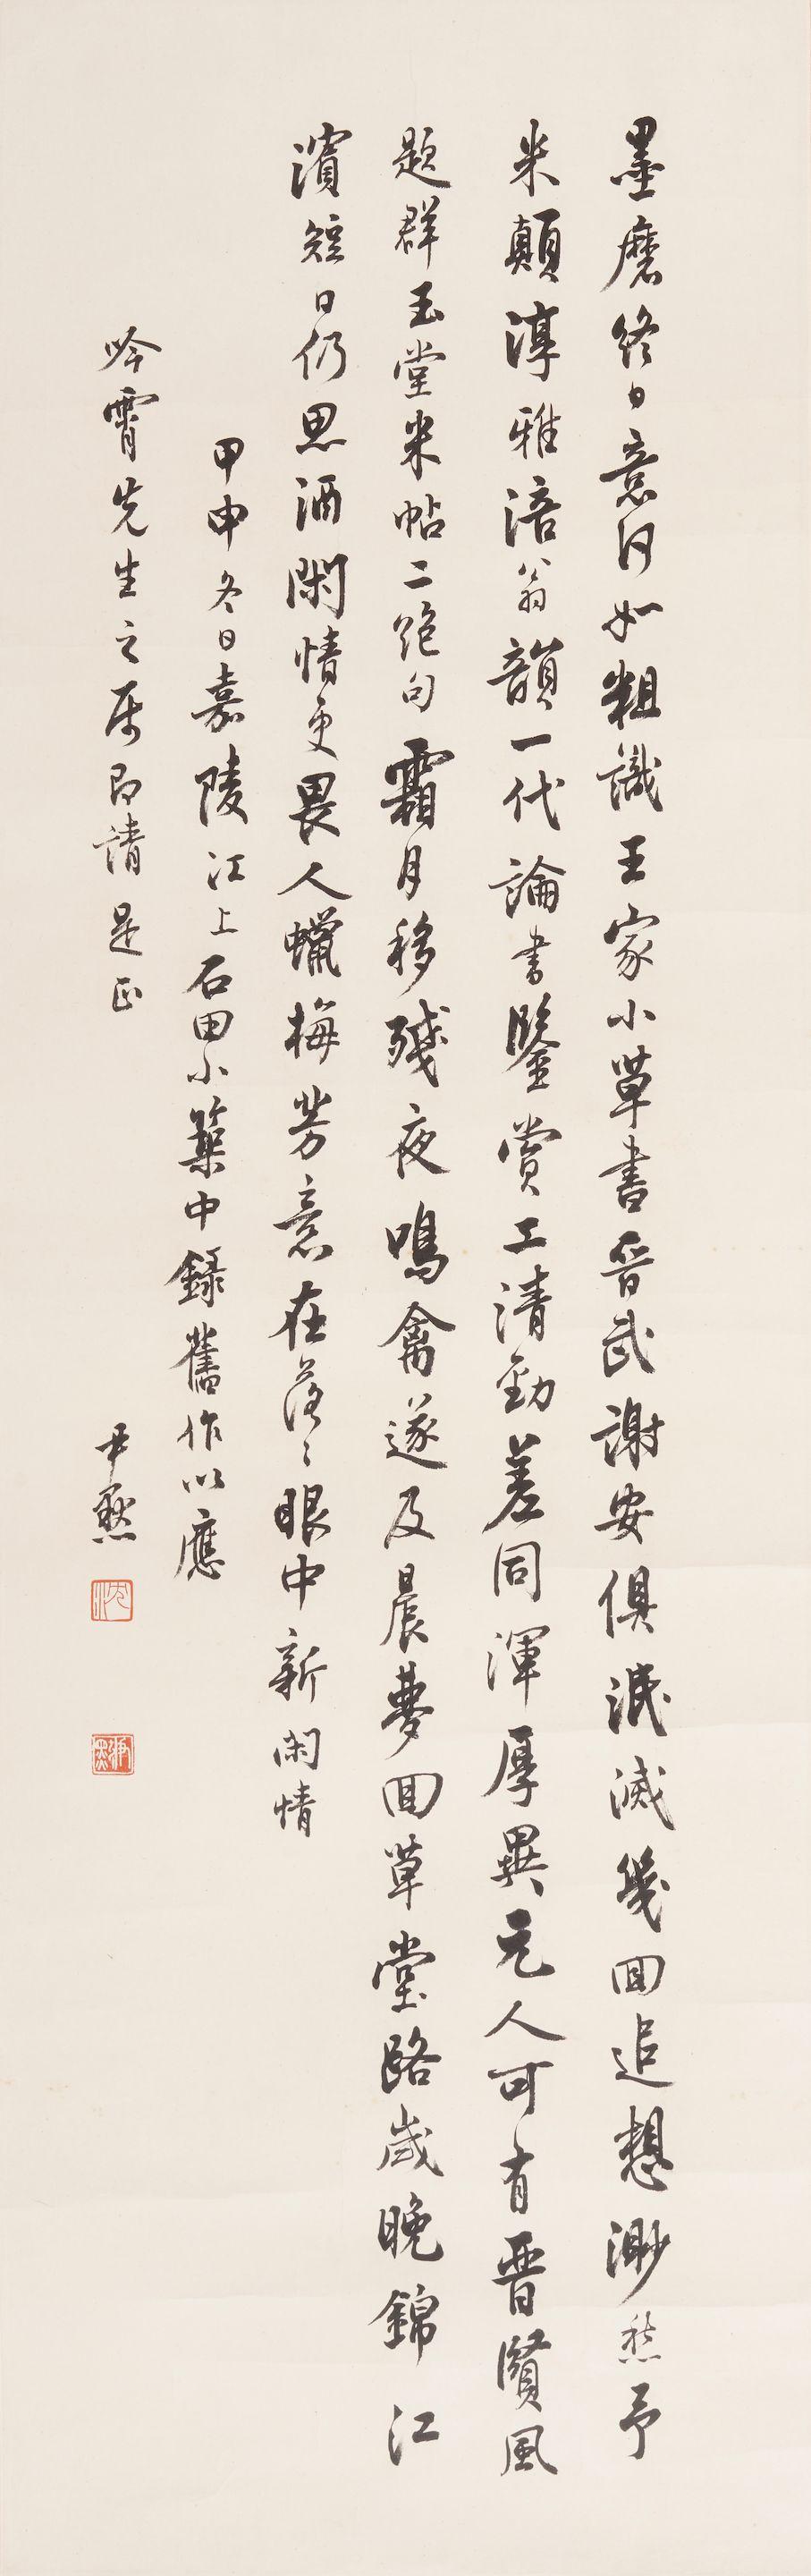 墨磨終日意何如粗識王家小草書晉武謝安俱泯滅幾回追想渺愁予
米顛淳雅涪翁韻一代論書鑒賞工清勁差同渾厚異元人可有晉賢風
題群玉堂米帖二絕句霜月移殘夜鳴禽遂及晨夢回草堂路歲晚錦江
濱短日仍思酒閑情更畏人蠟梅芳意在落〻眼中新閑情
甲申冬日嘉陵江上石田小築中錄舊作以應
吟霄先生之屬即請是正
尹默
沈